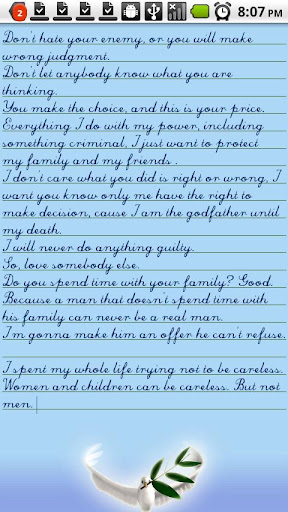 2
8:07 PM
Don't hate your enemy, or you will make
wrong judgment.
Don't let anybody know what you are
thinking.
You make the choice, and this is your price.
Everything I do with my power, including
something criminal, I just want to protect
my family and my friends .
I don't care what you did is right or wrong, I
want you know only me have the right to
make decision, cause I am the godfather until
my death.
I will never do anything guilty.
So, love somebody else.
Do you spend time with your family? Good.
Because a man that doesn't spend time with
his family can never be a real man.
I'm gonna make him an offer he can't refuse.
I spent my whole life trying not to be careless.
Women and children can be careless. But not
men.